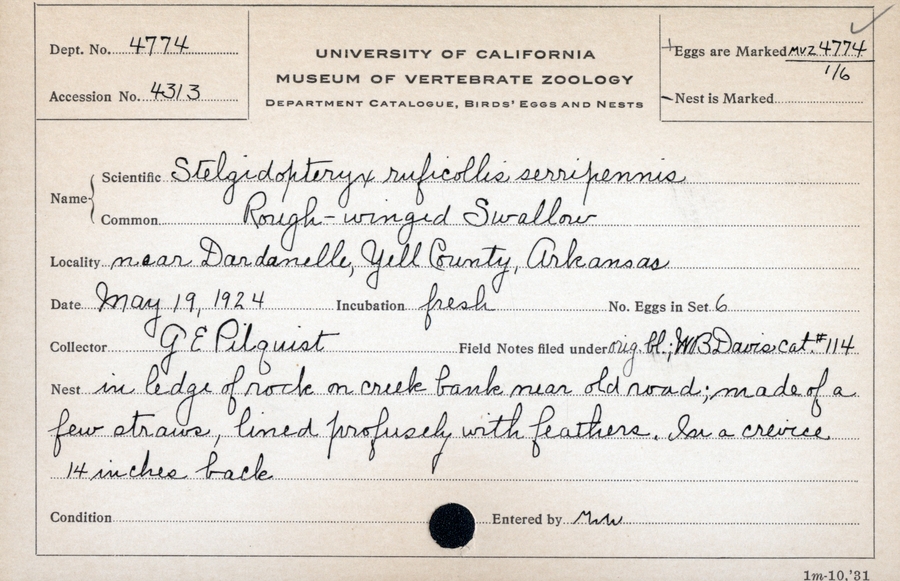 Dept. No. 4774
Accession No. 4313
UNIVERSITY OF CALIFORNIA
MUSEUM OF VERTEBRATE ZOOLOGY
DEPARTMENT CATALOGUE, BIRDS' EGGS AND NESTS
Eggs are Marked MVZ 4774
1/6
Nest is Marked
Name
Scientific Stelgidopteryx ruficollis serripennis
Common Rough-winged Swallow
Locality near Dardanelle, Yell County, Arkansas
Date May 19, 1924 Incubation fresh No. Eggs in Set 6
Collector G E Pilquist Field Notes filed under orig. bl.; WB Davis cat. #114
Nest in ledge of rock on creek bank near old road; made of a
few straws, lined profusely with feathers. In a crevice
14 inches back
Condition Entered by
1m-10,'31